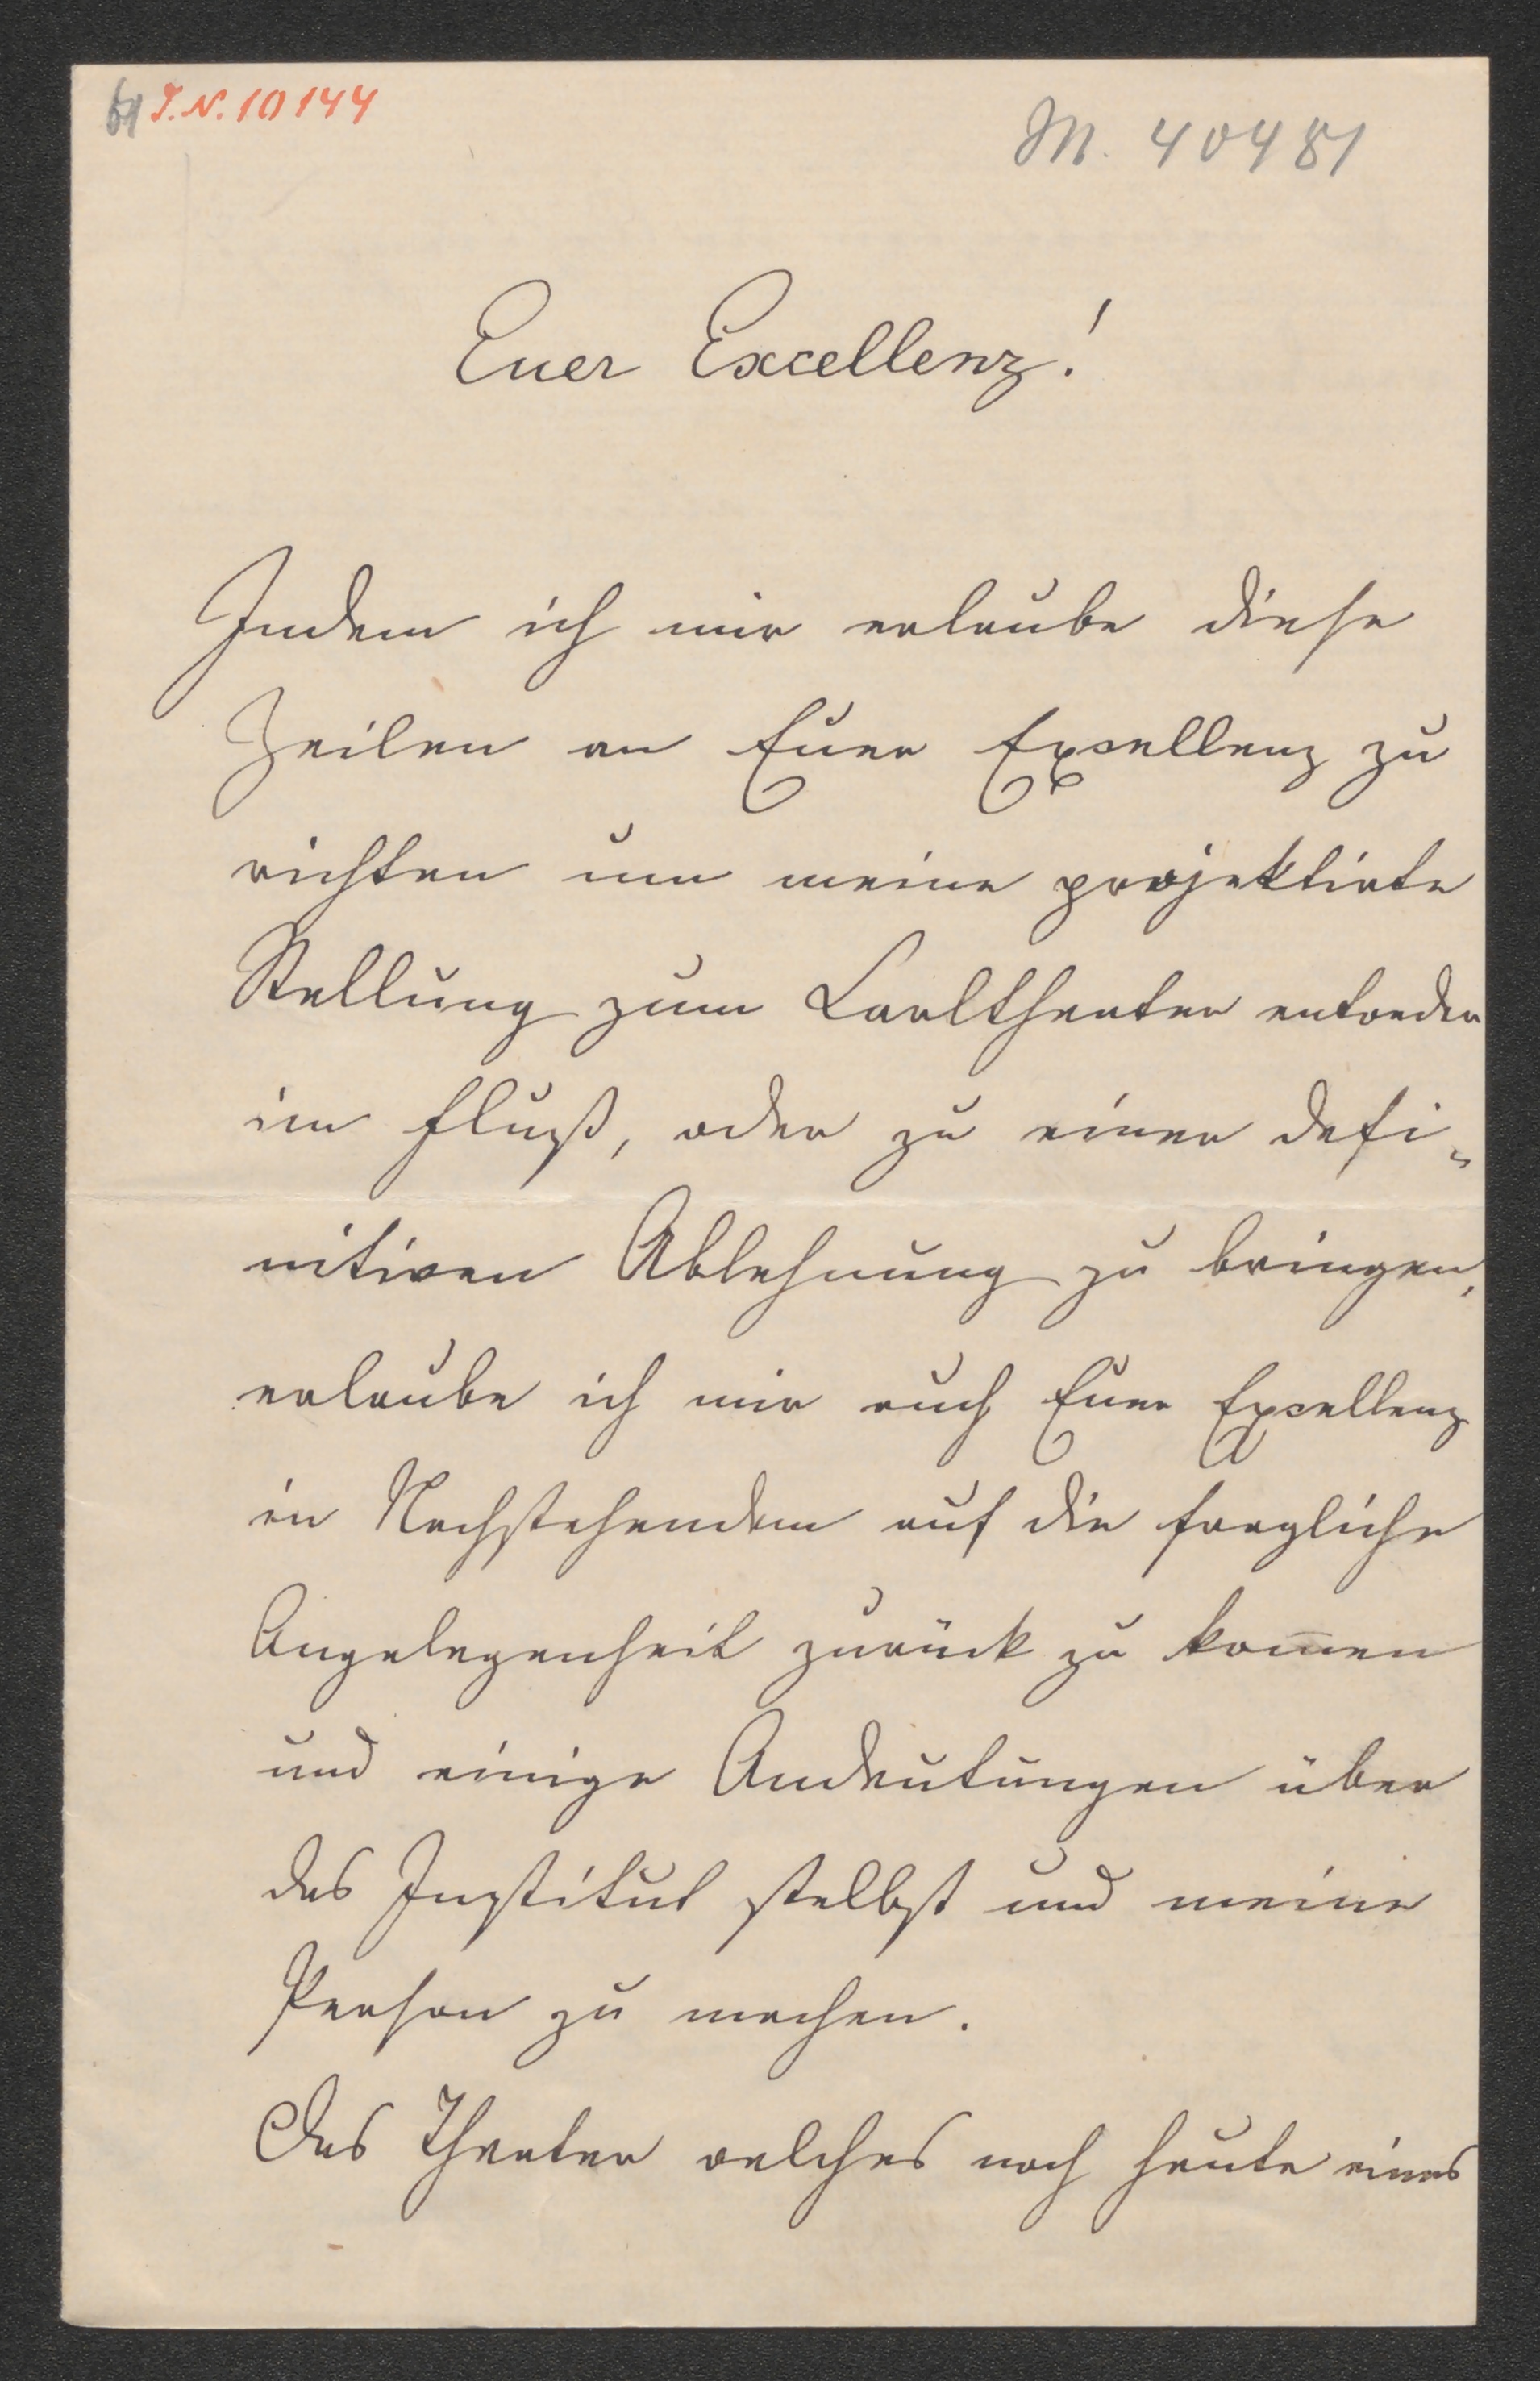 I.N. 10144
M. 40481
Euer Excellenz!
Indem ich mir erlaube diese
Zeilen an Euer Excellenz zu
richten um meine projektirte
Stellung zum Carltheater entweder
im Fluß, oder zu einer defi„
nitiven Ablehnung zu bringen,
erlaube ich mir auch Euer Excellenz
in Nachstehendem auf die fragliche
Angelegenheit zurück zu kom̅en
und einige Andeutungen über
das Institut stelbst und meine
Person zu machen.
Das Theater welches noch heute eines